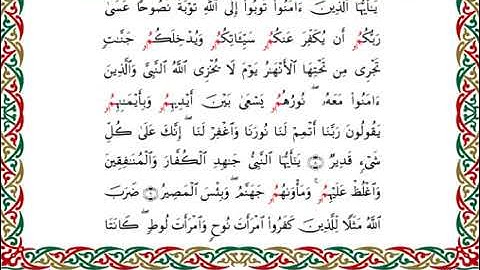 يَٰٓأَيُّهَا ٱلَّذِينَ ءَامَنُوا۟ تُوبُوٓا۟ إِلَى ٱللَّهِ تَوْبَةً نَّصُوحًا عَسَىٰ
رَبُّكُمُۥ أَن يُكَفِّرَ عَنكُمُۥ سَيِّـَٔاتِكُمُۥ وَيُدْخِلَكُمُۥ جَنَّٰتٍ
تَجْرِى مِن تَحْتِهَا ٱلْأَنْهَٰرُ يَوْمَ لَا يُخْزِى ٱللَّهُ ٱلنَّبِىَّ وَٱلَّذِينَ
ءَامَنُوا۟ مَعَهُۥ ۖ نُورُهُمُۥ يَسْعَىٰ بَيْنَ أَيْدِيهِمُۥ وَبِأَيْمَٰنِهِمُۥ
يَقُولُونَ رَبَّنَآ أَتْمِمْ لَنَا نُورَنَا وَٱغْفِرْ لَنَآ ۖ إِنَّكَ عَلَىٰ كُلِّ
شَىْءٍ قَدِيرٌ ۝ يَٰٓأَيُّهَا ٱلنَّبِىُّ جَٰهِدِ ٱلْكُفَّارَ وَٱلْمُنَٰفِقِينَ
وَٱغْلُظْ عَلَيْهِمُۥ ۚ وَمَأْوَىٰهُمُۥ جَهَنَّمُ ۖ وَبِئْسَ ٱلْمَصِيرُ ۝ ضَرَبَ
ٱللَّهُ مَثَلًا لِّلَّذِينَ كَفَرُوا۟ ٱمْرَأَتَ نُوحٍ وَٱمْرَأَتَ لُوطٍ ۖ كَانَتَا